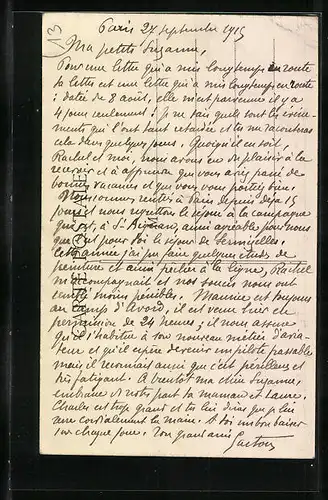 13
Paris 27 septembre 1915
Ma petite Suzanne,
Pour une lettre qui a mis longtemps en route
ta lettre est une lettre qui a mis longtemps en route
: datée de 8 août, elle m'est parvenue il y a
4 jours seulement! Je ne sais quels sont les événe-
ments qui l'ont tant retardée et tu me raconteras
cela dans quelques jours. Quoiqu'il en soit,
Rachel et moi, nous avons eu du plaisir à la
recevoir et à apprendre que vous aviez passé de
bonnes vacances et que vous vous portiez bien.
Nous sommes rentrés à Paris depuis déjà 15
jours et nous regrettons le séjour à la campagne
qui est, à St aussi agréable pour nous
que pour toi le séjour de
Cette année j'ai pu faire quelques études de
peinture et aussi pêcher à la ligne, Rachel
m'accompagnait et nos soucis nous ont
semblé moins pénibles. Maurice est toujours
au camp d'Avord, il est venu hier en
permission de 24 heures; il nous assure
qu'il s'habitue à son nouveau métier d'avia-
teur et qu'il espère devenir un pilote passable
mais il reconnaît aussi que c'est périlleux et
très fatigant. A bientôt ma chère Suzanne,
embrasse de notre part ta maman et Laure.
Charles est trop grand et tu lui diras que je lui
serre cordialement la main. A toi un bon baiser
sur chaque joue. Ton grand ami
Gaston
CARTE POSTALE